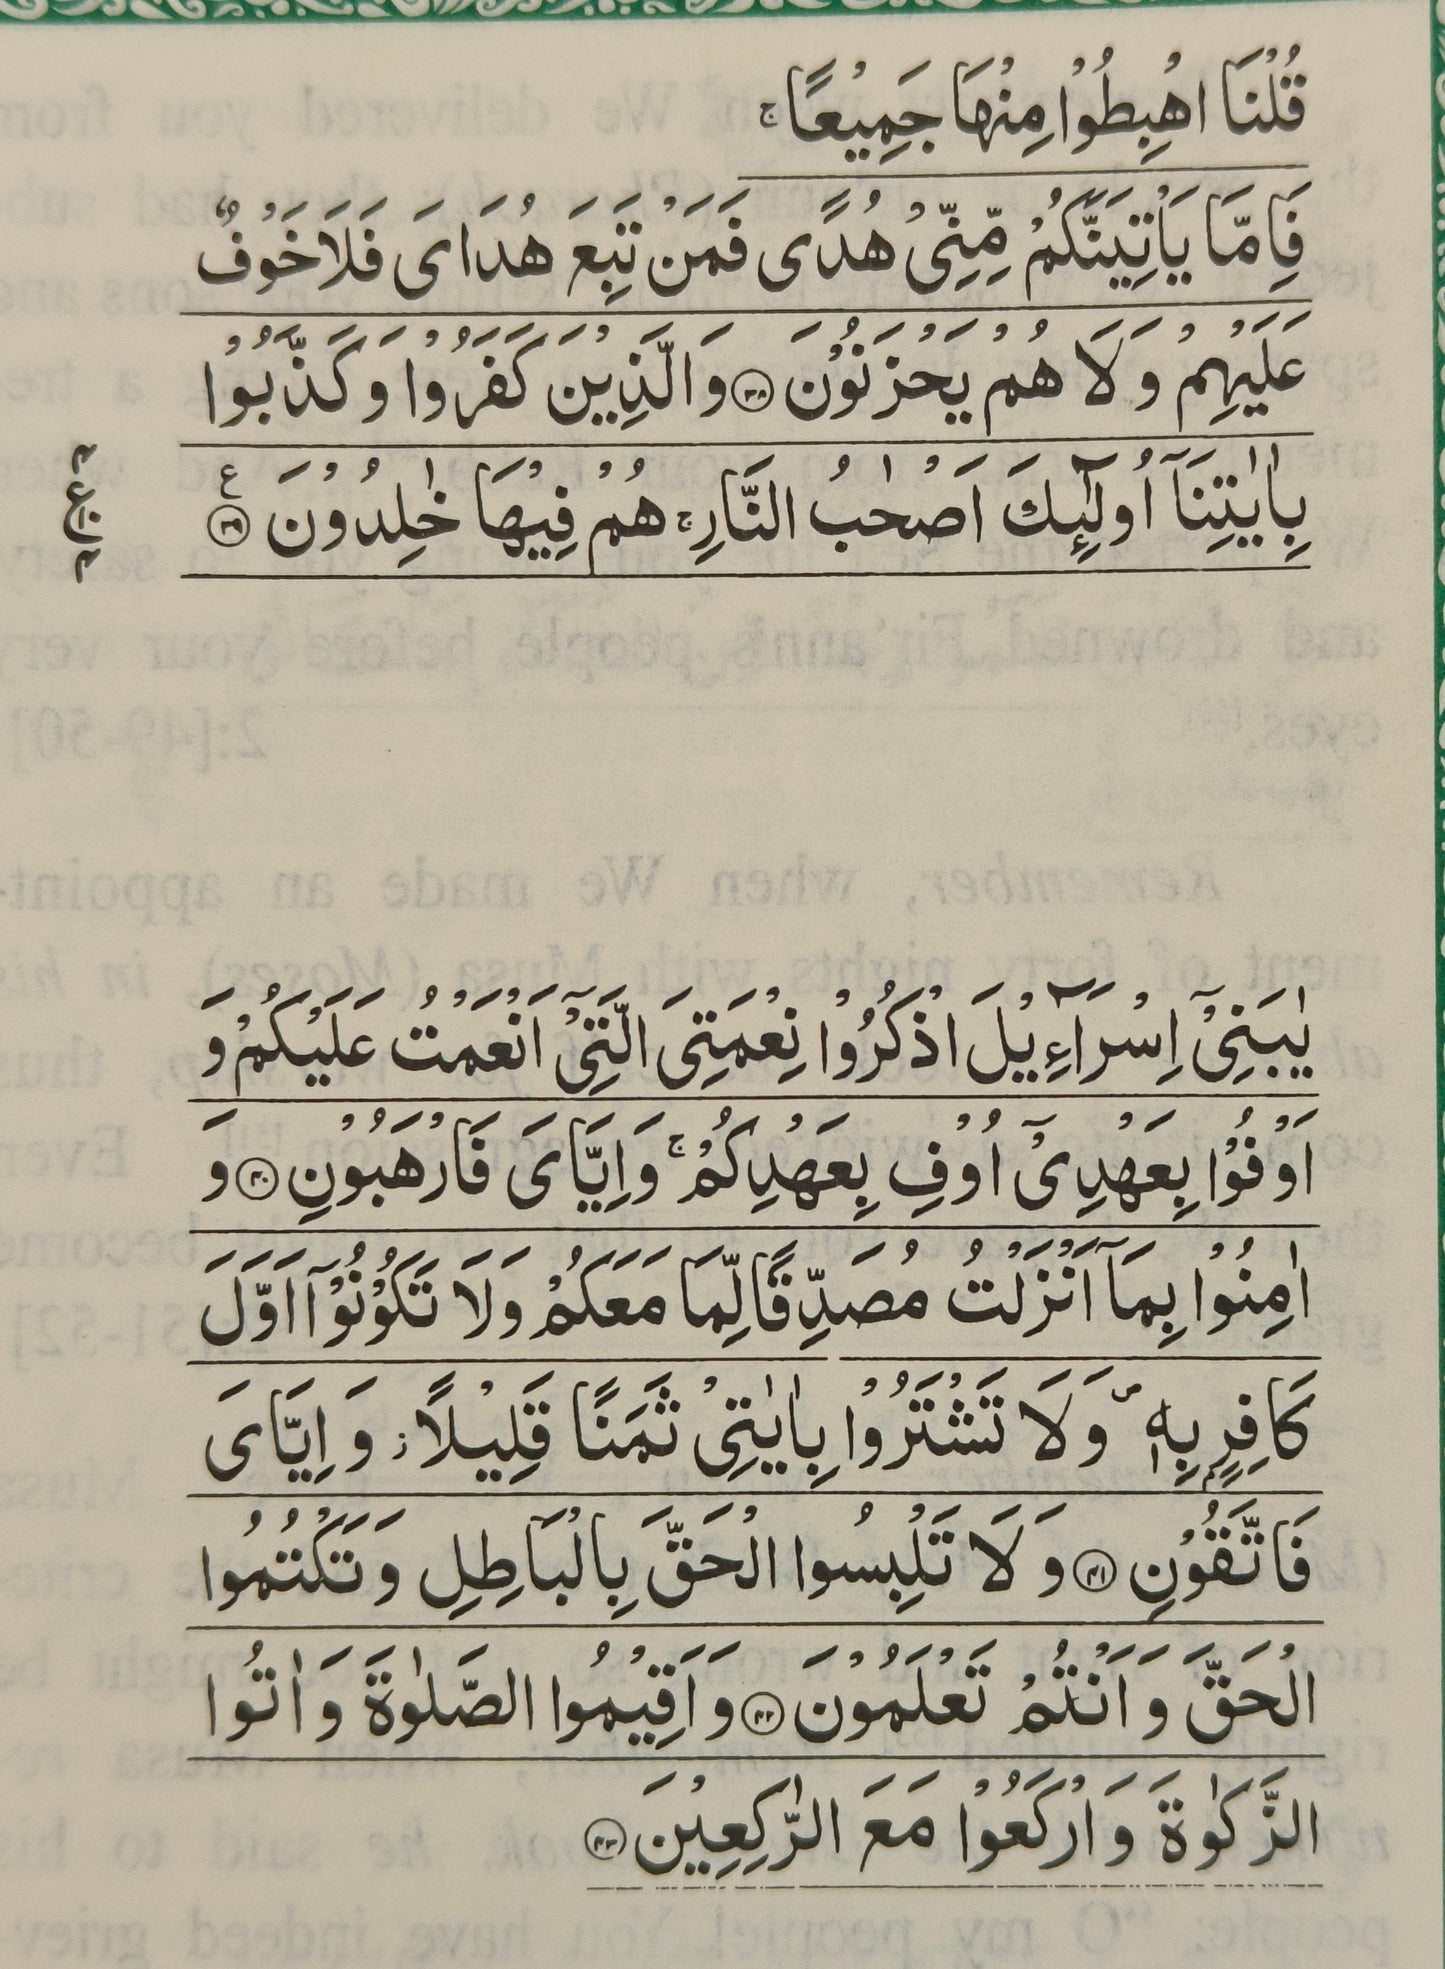 قُلْنَا اهْبِطُوْا مِنْهَا جَمِيْعًا ۚ
فَاِمَّا يَاْتِيَنَّكُمْ مِّنِّىْ هُدًى فَمَنْ تَبِعَ هُدَاىَ فَلَا خَوْفٌ
عَلَيْهِمْ وَلَا هُمْ يَحْزَنُوْنَ ﴿۳۸﴾ وَالَّذِيْنَ كَفَرُوْا وَكَذَّبُوْا
بِاٰيٰتِنَآ اُولٰٓئِكَ اَصْحٰبُ النَّارِ ۚ هُمْ فِيْهَا خٰلِدُوْنَ ﴿۳۹﴾ ع
يٰبَنِىْٓ اِسْرَآءِيْلَ اذْكُرُوْا نِعْمَتِىَ الَّتِىْٓ اَنْعَمْتُ عَلَيْكُمْ وَ
اَوْفُوْا بِعَهْدِىْٓ اُوْفِ بِعَهْدِكُمْ ۚ وَاِيَّاىَ فَارْهَبُوْنِ ﴿۴۰﴾ وَ
اٰمِنُوْا بِمَآ اَنْزَلْتُ مُصَدِّقًا لِّمَا مَعَكُمْ وَلَا تَكُوْنُوْٓا اَوَّلَ
كَافِرٍۭ بِهٖ ۪ وَلَا تَشْتَرُوْا بِاٰيٰتِىْ ثَمَنًا قَلِيْلًا ؗ وَاِيَّاىَ
فَاتَّقُوْنِ ﴿۴۱﴾ وَلَا تَلْبِسُوا الْحَقَّ بِالْبَاطِلِ وَتَكْتُمُوا
الْحَقَّ وَاَنْتُمْ تَعْلَمُوْنَ ﴿۴۲﴾ وَاَقِيْمُوا الصَّلٰوةَ وَاٰتُوا
الزَّكٰوةَ وَارْكَعُوْا مَعَ الرّٰكِعِيْنَ ﴿۴۳﴾